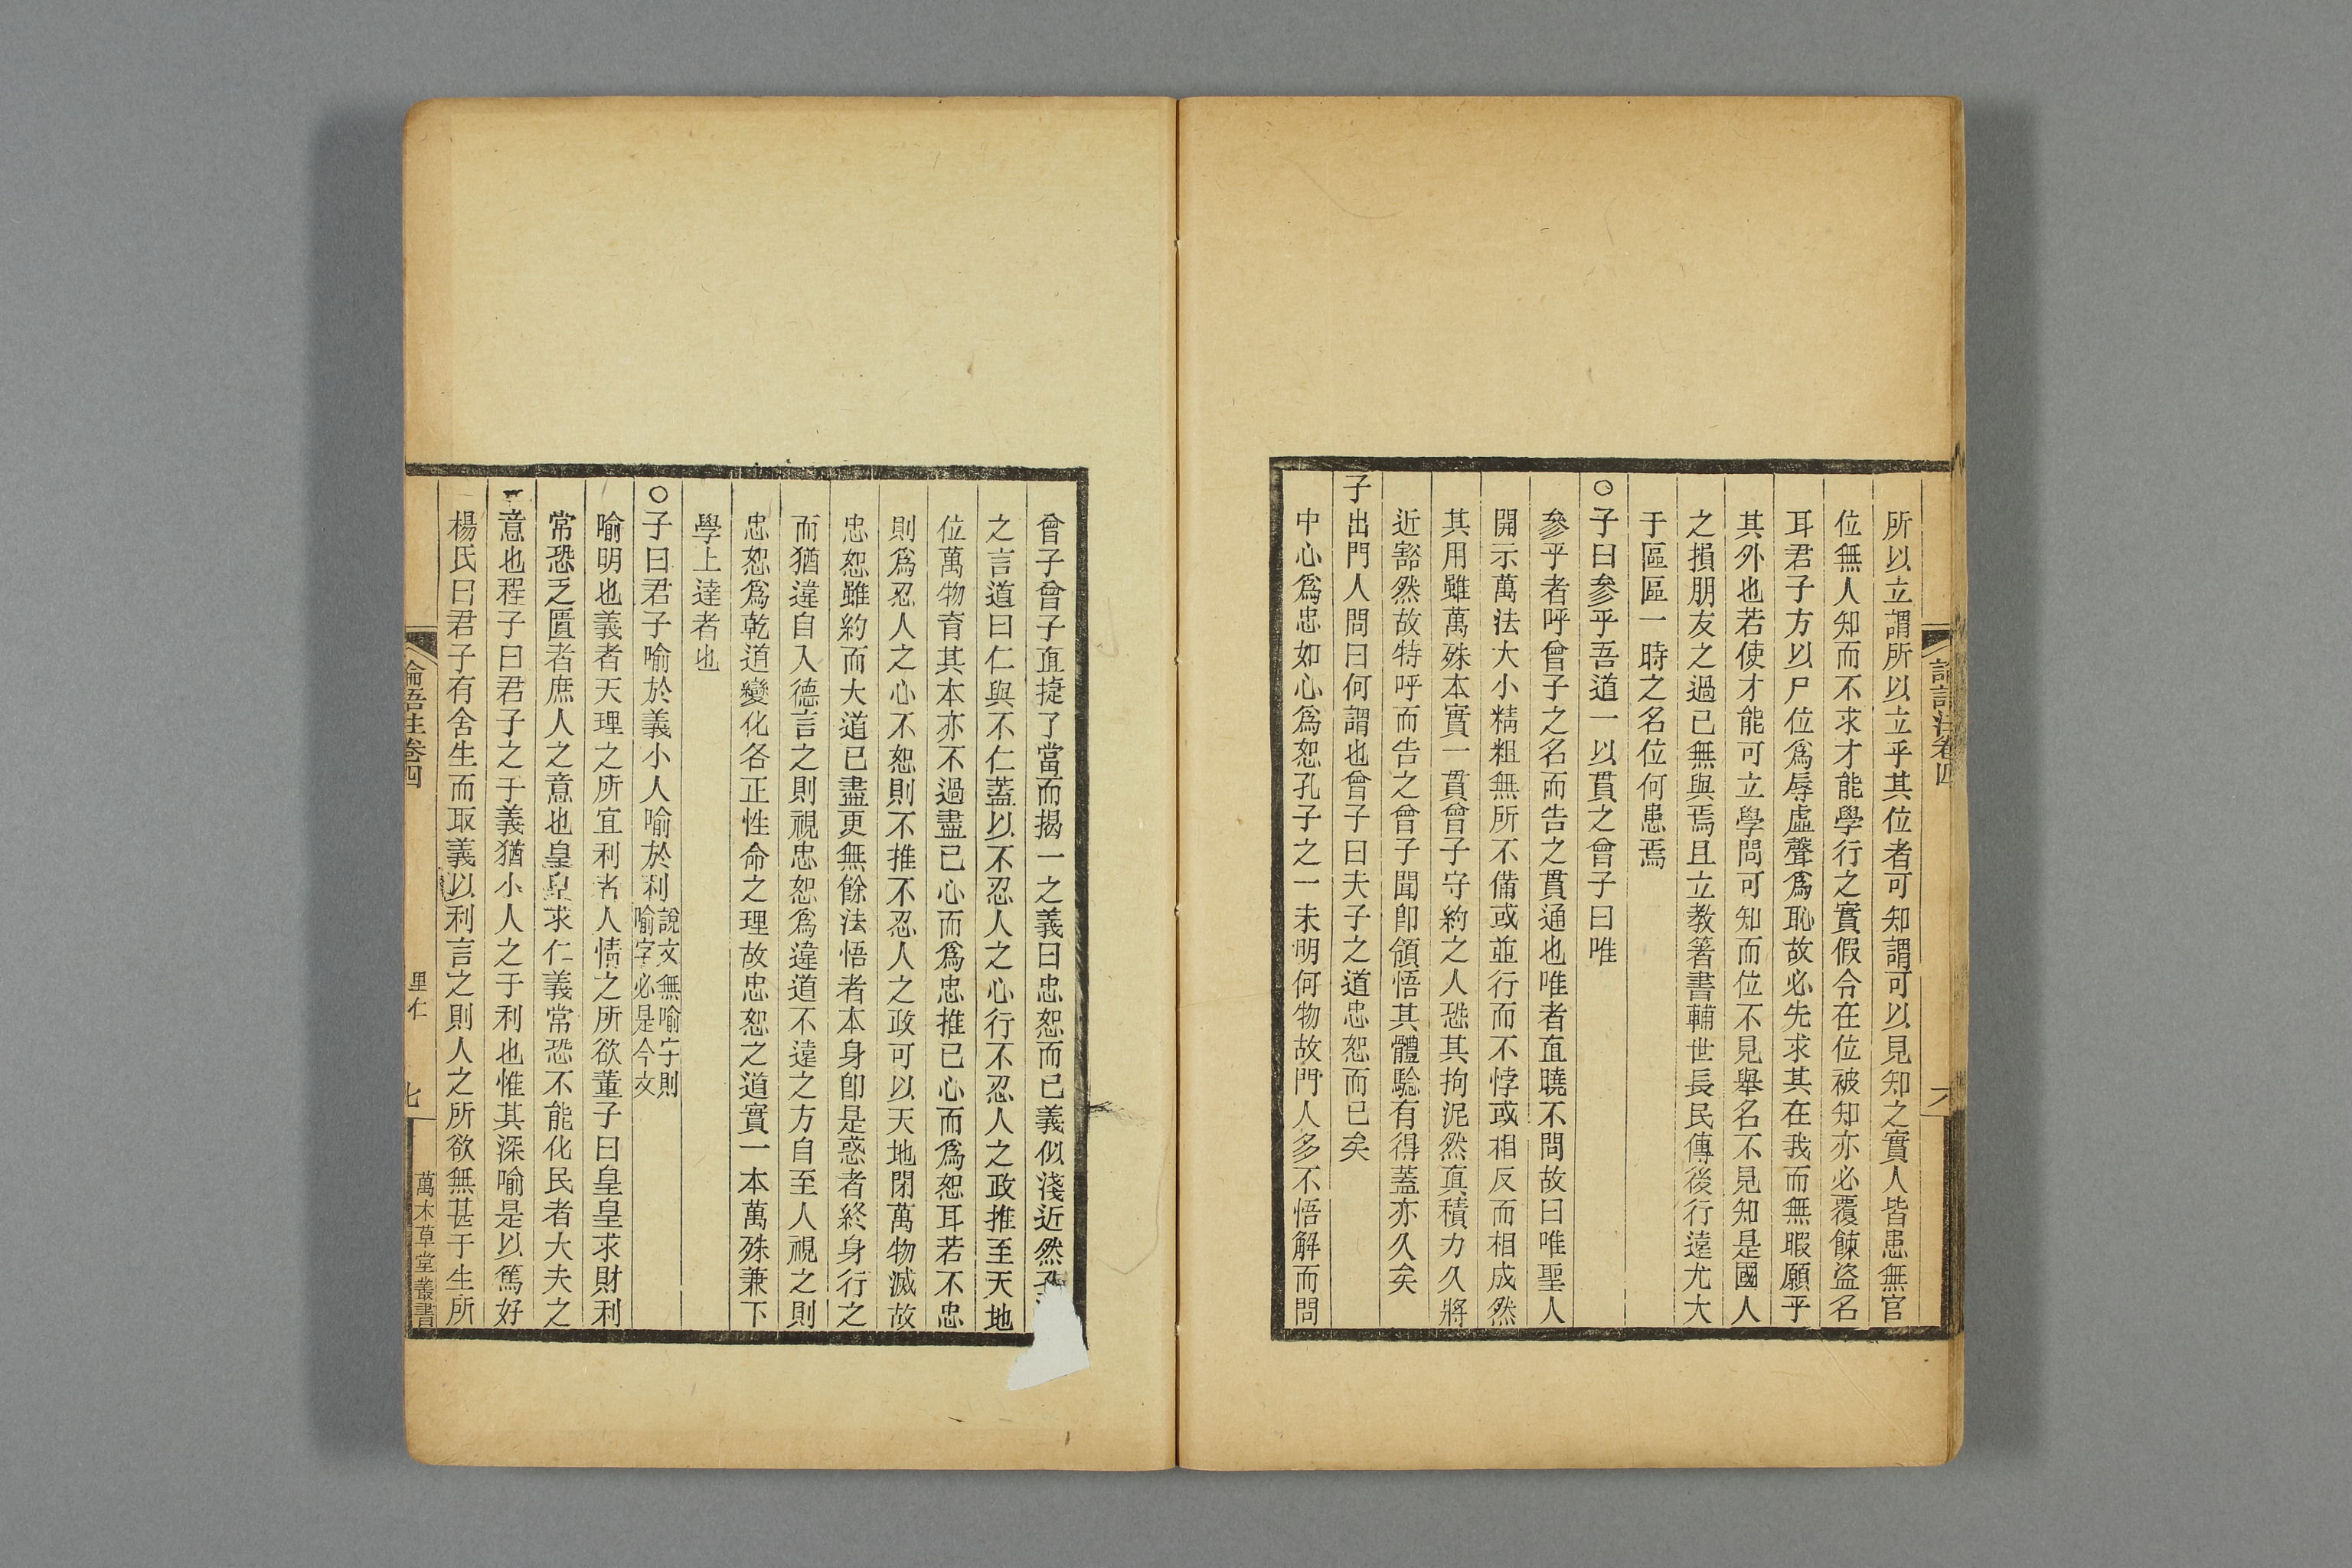 論語注卷四
所以立謂所以立乎其位者可知謂可以見知之實人皆患無官
位無人知而不求才能學行之實假令在位被知亦必覆餗盜名
耳君子方以尸位爲辱虛聲爲恥故必先求其在我而無暇願乎
其外也若使才能可立學問可知而位不見舉名不見知是國人
之損朋友之過已無與焉且立教箸書輔世長民傳後行遠尤大
于區區一時之名位何患焉
○子曰參乎吾道一以貫之曾子曰唯
參乎者呼曾子之名而告之貫通也唯者直曉不問故曰唯聖人
開示萬法大小精粗無所不備或並行而不悖或相反而相成然
其用雖萬殊本實一貫曾子守約之人恐其拘泥然真積力久將
近豁然故特呼而告之曾子聞卽領悟其體驗有得蓋亦久矣
子出門人問曰何謂也曾子曰夫子之道忠恕而已矣
中心爲忠如心爲恕孔子之一未明何物故門人多不悟解而問
曾子曾子直捷了當而揭一之義曰忠恕而已義似淺近然
之言道曰仁與不仁蓋以不忍人之心行不忍人之政推至天地
位萬物育其本亦不過盡已心而爲忠推已心而爲恕耳若不忠
則爲忍人之心不恕則不推不忍人之政可以天地閉萬物滅故
忠恕雖約而大道已盡更無餘法悟者本身卽是惑者終身行之
而猶違自入德言之則視忠恕爲違道不遠之方自至人視之則
忠恕爲乾道變化各正性命之理故忠恕之道實一本萬殊兼下
學上達者也
○子曰君子喻於義小人喻於利說文無喻字則
喻字必是今文
喻明也義者天理之所宜利者人情之所欲董子曰皇皇求財利
常恐乏匱者庶人之意也皇皇求仁義常恐不能化民者大夫之
意也程子曰君子之于義猶小人之于利也惟其深喻是以篤好
楊氏曰君子有舍生而取義以利言之則人之所欲無甚于生所
論語注卷四
里仁
七
萬木草堂叢書